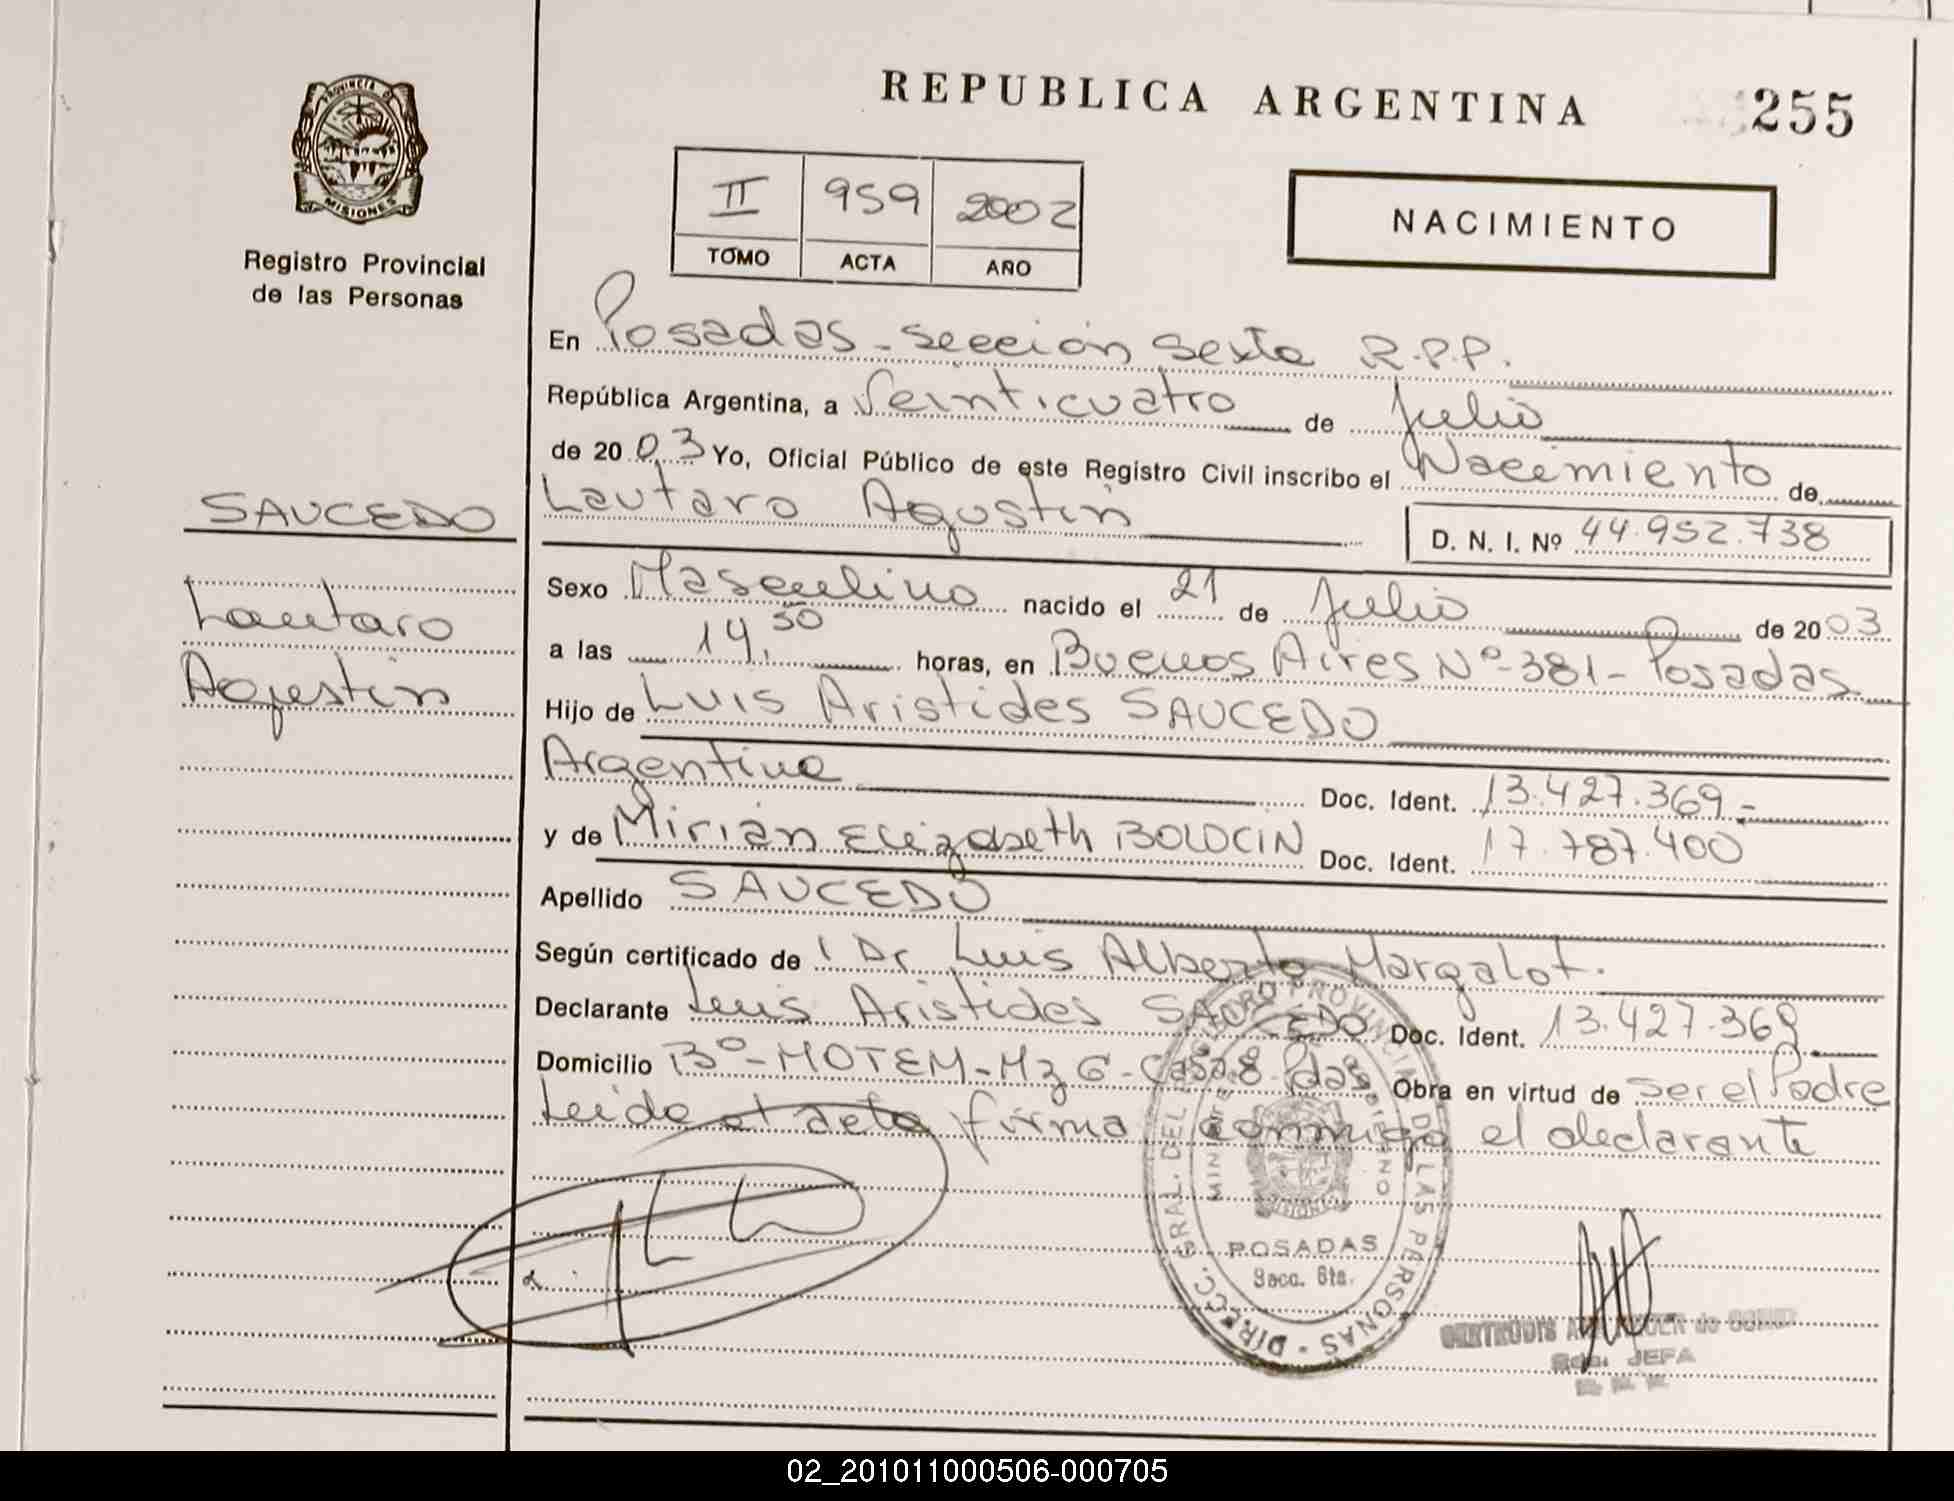 PROVINCIA DE
MISIONES
Registro Provincial
de las Personas
REPUBLICA ARGENTINA
255
II 959 2002
TOMO ACTA AÑO
NACIMIENTO
En Posadas - Sección Sexta R.P.P.
República Argentina, a Veinticuatro de Julio
de 2003 Yo, Oficial Público de este Registro Civil inscribo el Nacimiento de
SAUCEDO
Lautaro Agustín
D. N. I. Nº 44.952.738
Lautaro
Agustin
Sexo Masculino nacido el 21 de Julio de 2003
a las 14,50 horas, en Buenos Aires Nº-381- Posadas
Hijo de Luis Aristides SAUCEDO
Argentina Doc. Ident. 13.427.369.-
y de Mirian Elizabeth BOLOCIN Doc. Ident. 17.787.400
Apellido SAUCEDO
Según certificado de Dr Luis Alberto Margalot.
Declarante Luis Aristides SAUCEDO Doc. Ident. 13.427.369
Domicilio Bº-MOTEM-Mz G-Casa 8-Pdas Obra en virtud de ser el Padre
Leido el acta firma conmigo el declarante
DIRECC. GRAL. DEL REGISTRO PROVINCIAL DE LAS PERSONAS
POSADAS
Secc. 6ta.
GERTRUDIS
JEFA
02_201011000506-000705